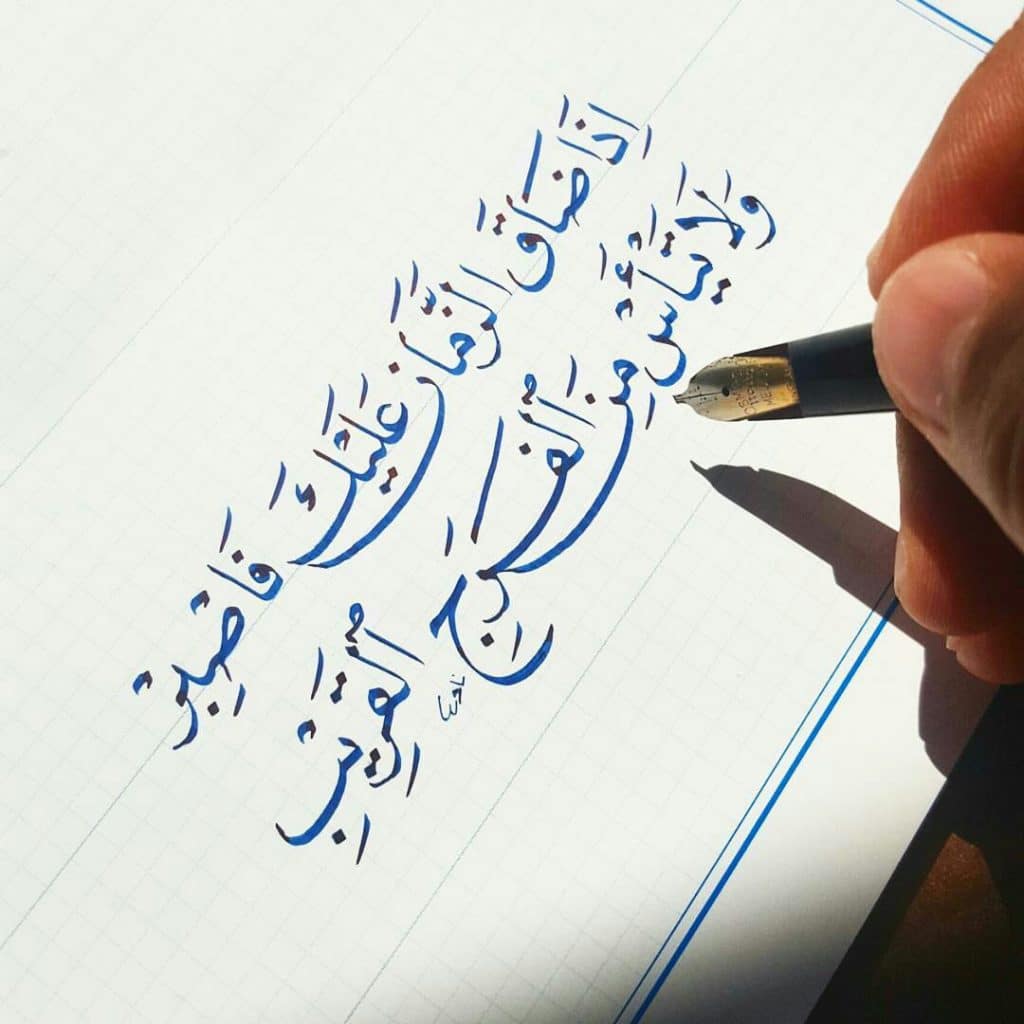 إِذَا ضَاقَ الزَّمَانُ عَلَيْكَ فَاصْبِرْ
وَلَا تَيْأَسْ مِنَ الْفَرَجِ الْقَرِيْبِ